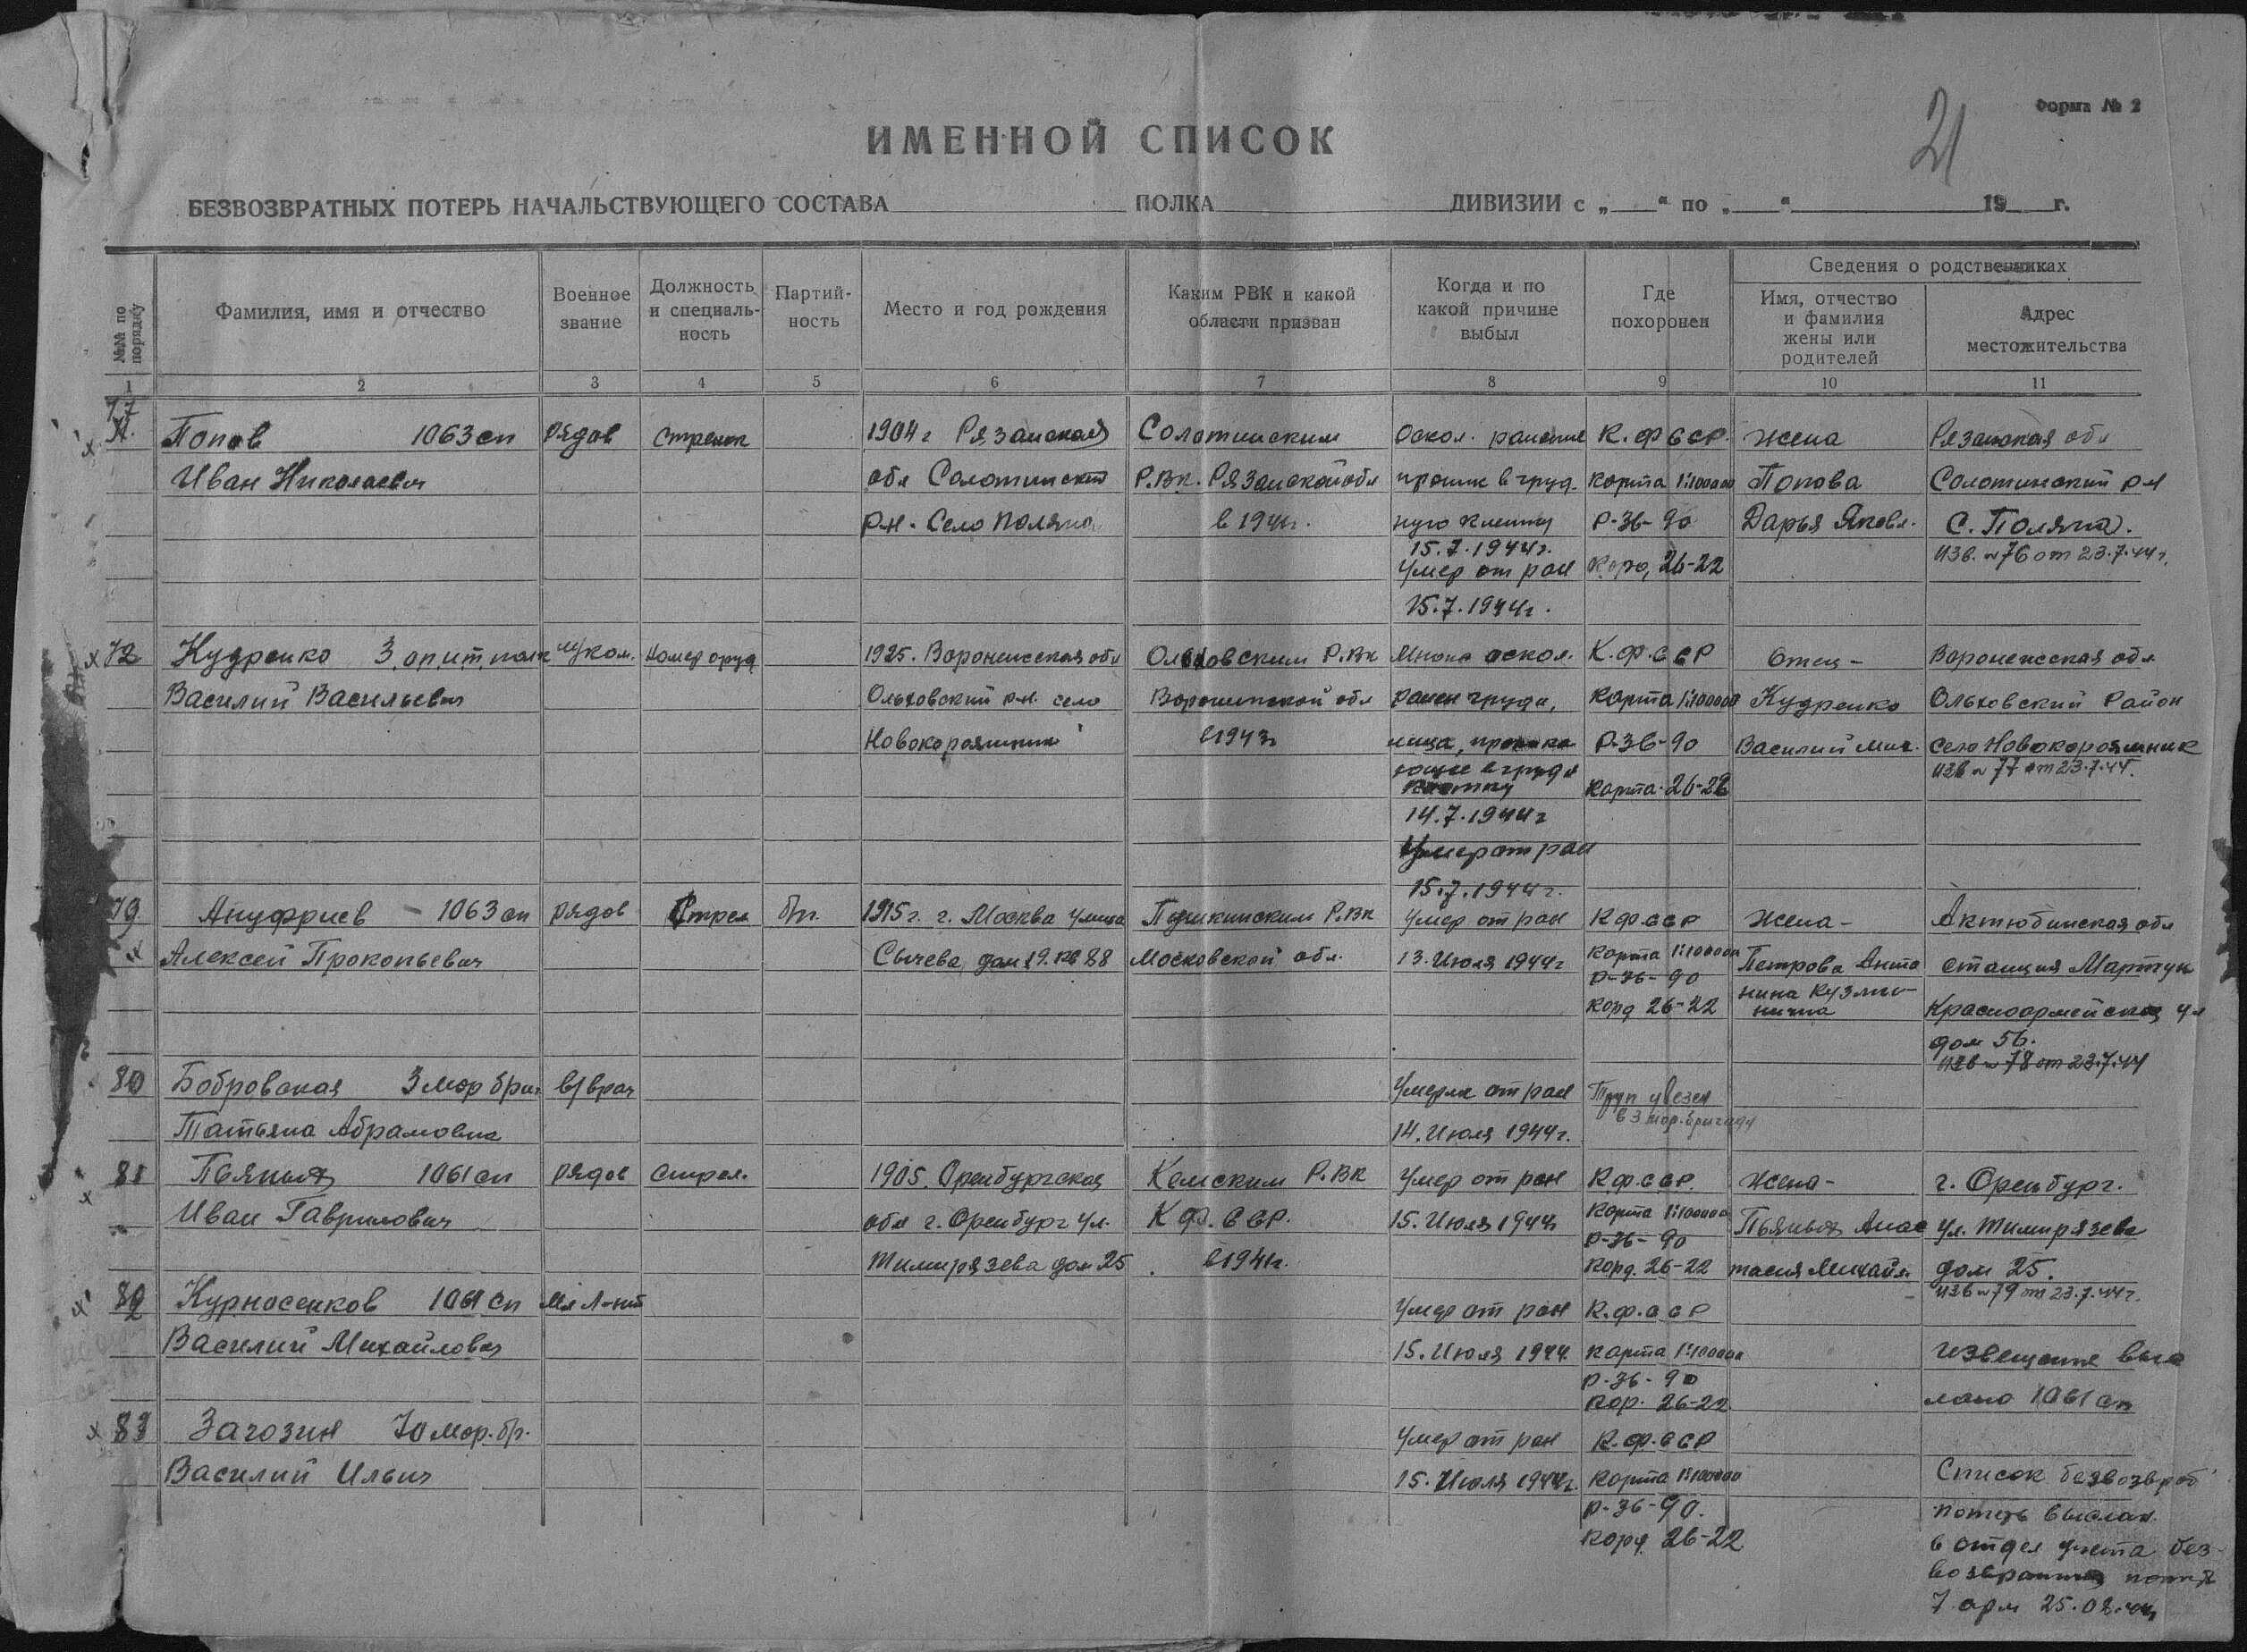 Форма № 2
21
ИМЕННОЙ СПИСОК
БЕЗВОЗВРАТНЫХ ПОТЕРЬ НАЧАЛЬСТВУЮЩЕГО СОСТАВА ПОЛКА ДИВИЗИИ с „ “ по „ “ 19 г.
№№ по порядку
Фамилия, имя и отчество
Военное звание
Должность и специаль-ность
Партий-ность
Место и год рождения
Каким РВК и какой области призван
Когда и по какой причине выбыл
Где похоронен
Сведения о родственниках
Имя, отчество и фамилия жены или родителей
Адрес местожительства
1 2 3 4 5 6 7 8 9 10 11
77
Попов 1063 сп рядов стрелок 1904 г Рязанская Солотчинским Оскол. ранение К.Ф ССР. жена Рязанская обл
Иван Николаевич обл Солотчинский Р.Вк. Рязанской обл проник в груд- карта 1:100000 Попова Солотчинский р-н
рн. Село Поляна в 1941г. ную клетку Р-36-90 Дарья Яковл. с. Поляна.
15.7.1944г. изв. № 76 от 23.7.44г.
Умер от ран 26-22
15.7.1944г.
Кудренко З.опит.полк номер оруд 1925. Воронежская обл Ольховским Р.Вк Множ оскол. К.Ф.ССР Отец - Воронежская обл
Василий Васильевич Ольховский рн. село Воронежской обл ранен груди, карта 1:100000 Кудренко Ольховский Район
в 1943г лица, Р-36-90 Василий Мих. село
ющее в грудн изв № 77 от 23.7.44.
клетку карта-26-22
14.7.1944г
Умер от ран
15.7.1944г.
79 Ануфриев - 1063 сп рядов Стрел б/п. 1915г. г. Москва улица Пушкинским Р.Вк Умер от ран К Ф ССР Жена - Актюбинская обл
Алексей Прокопьевич Сычева, дом 19. кв 88 Московской обл. 13. Июля 1944г карта 1:100000 Петрова Анто станция Мартук
Р-36-90
нина Кузми-
корд 26-22 нична Красноармейская ул
дом 56.
изв № 78 от 23.7.44
80 Бобровская 3 мор бриг в/врач Умерла от ран Труп увезен
в 3 мор. бригаду
Татьяна Абрамовна 14. Июля 1944г.
81 Пьяных 1061 сп рядов стрел. 1905. Оренбургская Кемским Р.Вк Умер от ран К Ф ССР. жена - г. Оренбург.
Иван Гаврилович обл г. Оренбург ул. К Ф. ССР. 15. Июля 1944г карта 1:100000 Пьяных Анас ул. Тимирязева
Р-36-90
Тимирязева дом 25 в 1941г. корд. 26-22 тасия Михайл. дом 25.
изв № 79 от 23.7.44г.
82 Курносенков 1061 сп Мл Л-нт Умер от ран К.Ф.ССР
Василий Михайлович 15. Июля 1944. карта 1:100000 извещение выс
Р-36-90
кор. 26-22 лано 1061 сп
83 Загозин 70 мор. бр. Умер от ран К.Ф.ССР
Василий Ильич 15. Июля 1944г. карта 1:100000 Список безвозврат
Р-36-90. потерь выслан
корд 26-22 в отдел учета без-
возвратных
7 арм 25.08.44